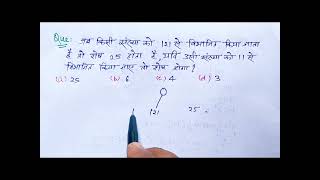 Que: जब किसी संख्या को 121 से विभाजित किया जाता
है तो शेष 25 होता है, यदि उसी संख्या को 11 से
विभाजित किया जाए तो शेष होगा?
(a) 25 (b) 6 (c) 4 (d) 3
121 25